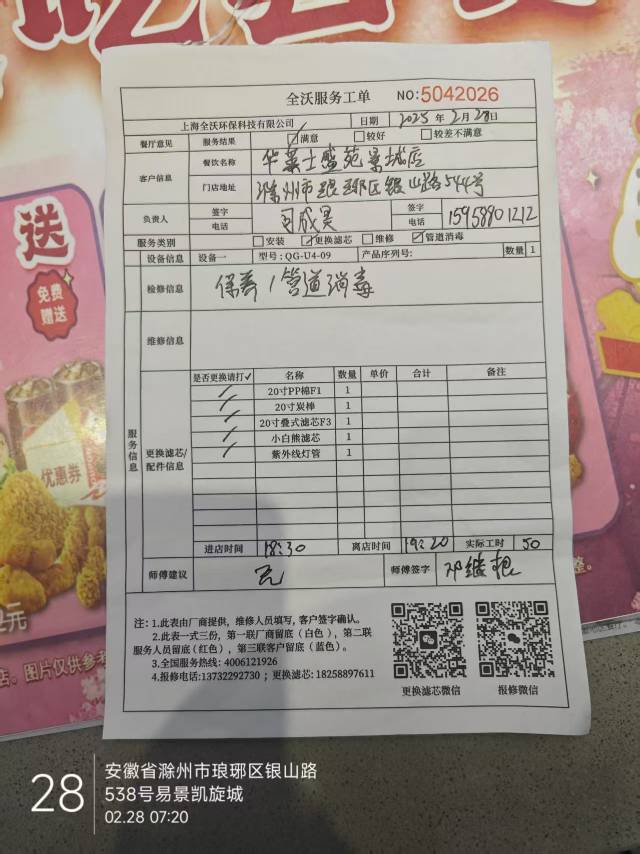 送
免费
赠送
优惠券
全沃服务工单 NO:5042026
上海全沃环保科技有限公司 日期 2025 年 2 月 28 日
餐厅意见 服务结果 ☑满意 □较好 □较差不满意
客户信息 餐饮名称 华莱士盛苑景城店
门店地址 滁州市琅琊区银山路544号
负责人 签字 电话 签字 电话 15958901212
服务类别 □安装 ☑更换滤芯 □维修 ☑管道消毒
设备信息 设备一 型号: QG-U4-09 产品序列号: 数量 1
检修信息 保养/管道消毒
维修信息
服务信息
更换滤芯/配件信息
是否更换请打✓ 名称 数量 单价 合计 备注
✓ 20寸PP棉F1 1
✓ 20寸炭棒 1
✓ 20寸叠式滤芯F3 1
✓ 小白熊滤芯 1
✓ 紫外线灯管 1
进店时间 18:30 离店时间 19:20 实际工时 50
师傅建议 无 师傅签字 邓继根
注: 1.此表由厂商提供, 维修人员填写, 客户签字确认。
2.此表一式三份, 第一联厂商留底 (白色) , 第二联
服务人员留底 (红色) , 第三联客户留底 (蓝色) 。
3.全国服务热线: 4006121926
4.报修电话:13732292730 ; 更换滤芯: 18258897611
更换滤芯微信 报修微信
元
店。图片仅供参考
28
安徽省滁州市琅琊区银山路
538号易景凯旋城
02.28 07:20